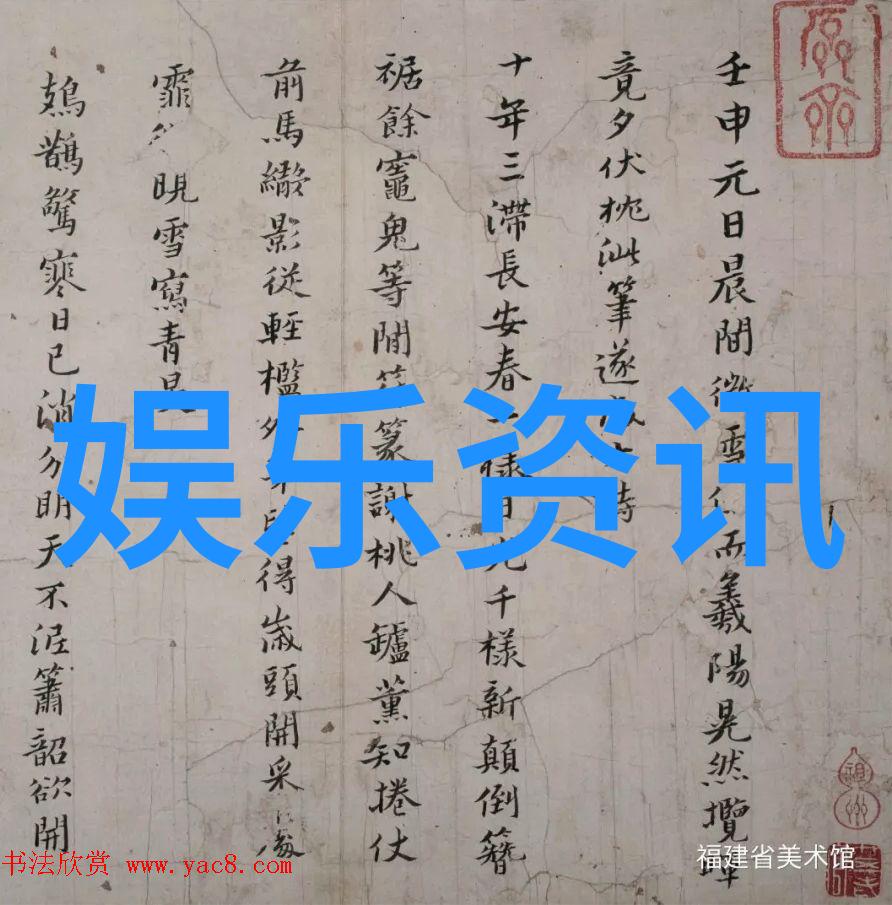 壬申元日晨間微雪仁而羲陽晃然攬
竟夕伏枕泚筆遂成詩
十年三滯長安春一樣日光千樣新顛倒簪
裾餘竈鬼等閒篆謝桃人鑪薰知捲仗
前馬繖影從輕檻得歲頭開采
霏晛雪寫青
鳷鵲驚寒日已消分明天不淫簫韶欲開
娱乐资讯
书法欣赏 www.yac8.com
福建省美术馆